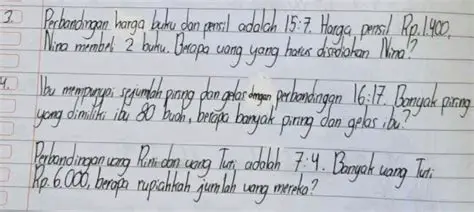 3. Perbandingan harga buku dan pensil adalah 15:7. Harga pensil Rp.1.400,
Nina membeli 2 buku. Berapa uang yang harus disediakan Nina?
4. Ibu mempunyai sejumlah piring dan gelas dengan perbandingan 16:17. Banyak piring
yang dimiliki ibu 80 buah, berapa banyak piring dan gelas ibu?
Perbandingan uang Rini dan uang Tuti adalah 7:4. Banyak uang Tuti
Rp.6.000, berapa rupiahkah jumlah uang mereka?